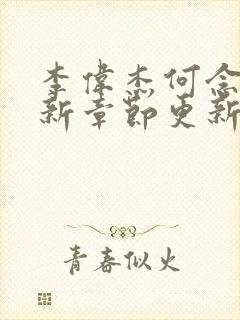 李偉杰何念
新章節更新
青春似火